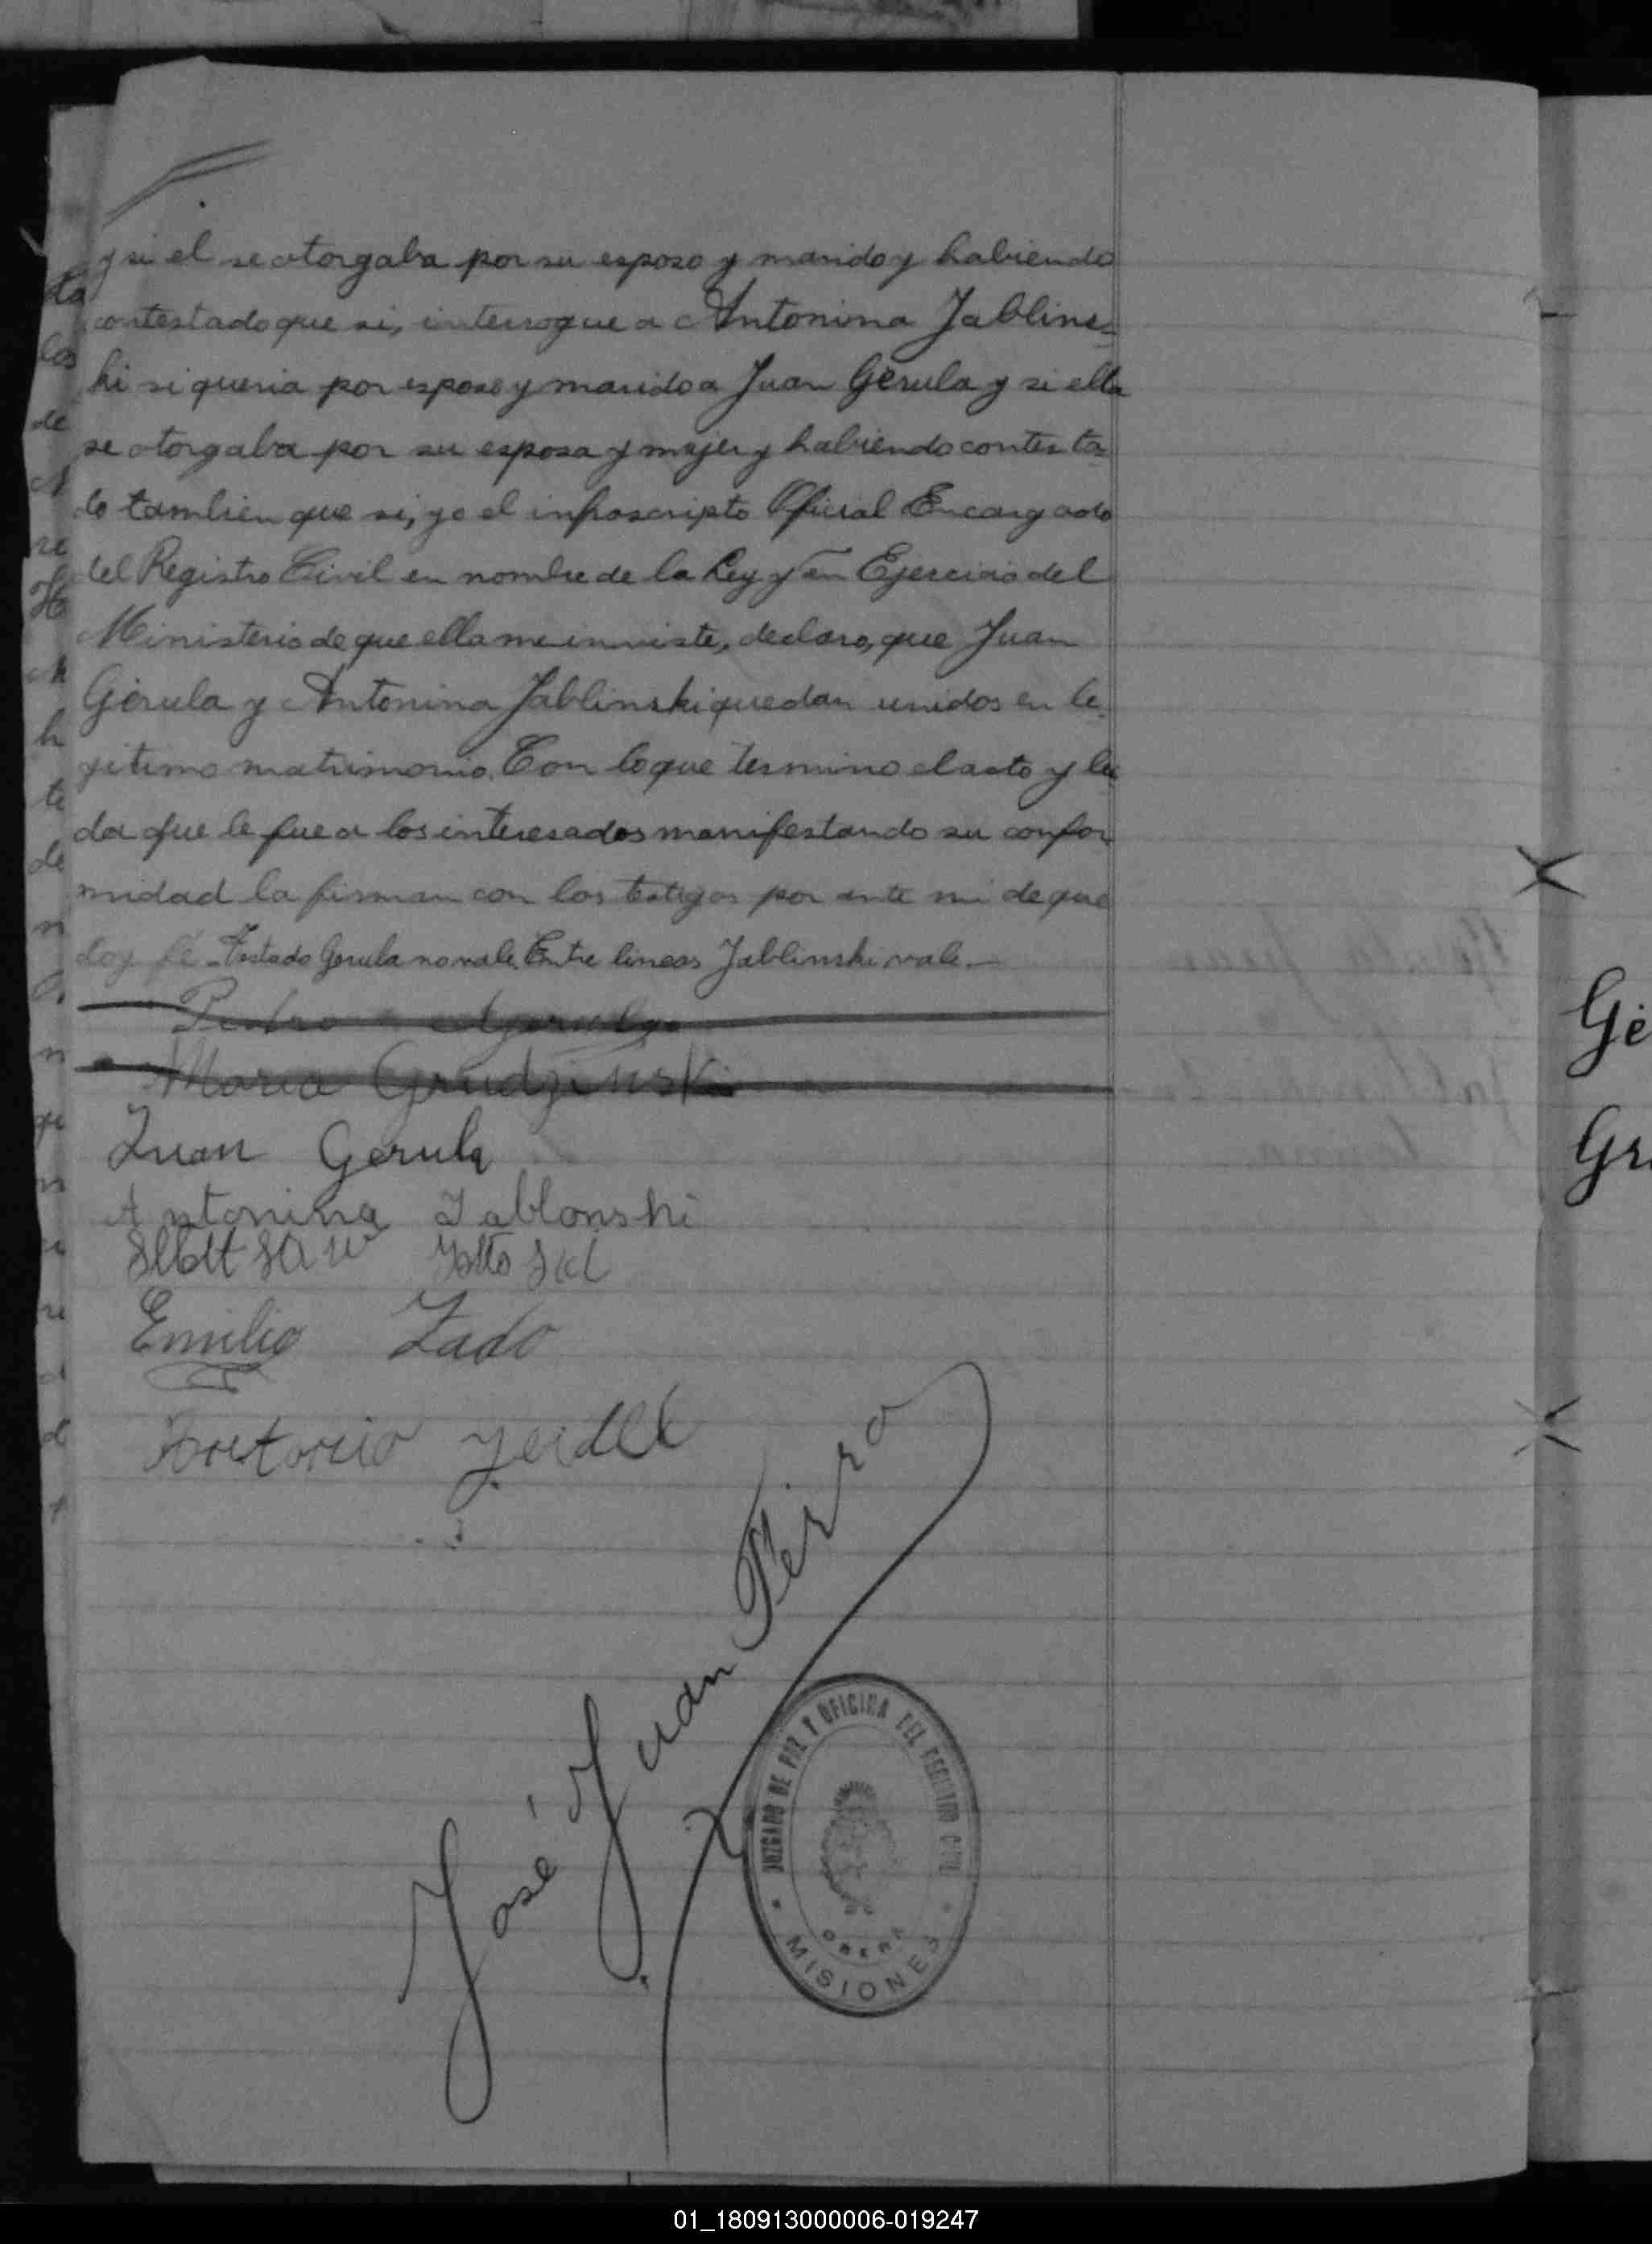 y si el se otorgaba por su esposo y marido y habiendo
contestado que si, interrogue a Antonina Jablins-
ki si queria por esposo y marido a Juan Gerula y si ella
se otorgaba por su esposa y mujer y habiendo contesta-
do tambien que si, yo el infrascripto Oficial Encargado
del Registro Civil en nombre de la Ley y en Ejercicio del
Ministerio de que ella me inviste, declaro, que Juan
Gerula y Antonina Jablinski quedan unidos en le-
gitimo matrimonio. Con lo que termino el acto y lei
da que le fue a los interesados manifestando su confor
midad la firman con los testigos por ante mi de que
doy fé. Testado Gerula no vale. Entre lineas Jablinski vale.—
Pedro
Maria Grudzinski
Juan Gerula
Antonina Jablonski
Emilio Zado
José Juan Peirro
JUZGADO DE PAZ Y OFICINA DEL REGISTRO CIVIL
OBERA
MISIONES
Gé
Gr
01_180913000006-019247